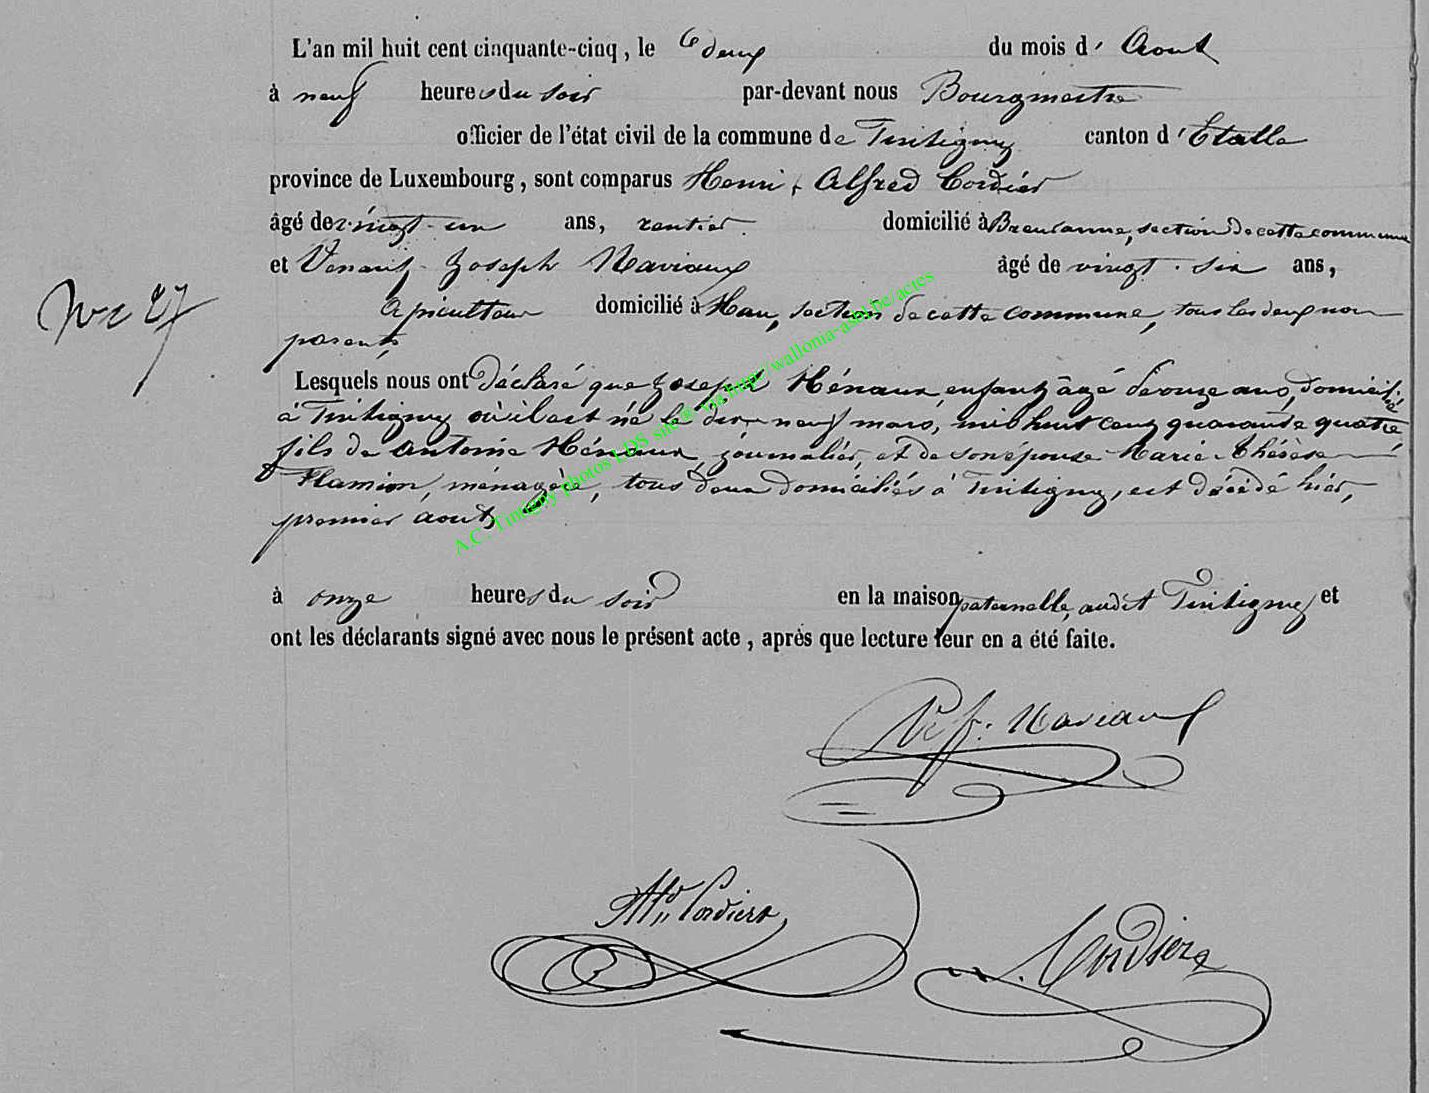 L'an mil huit cent cinquante-cinq, le deux du mois d' Aout
à neuf heures du soir par-devant nous Bourgmestre
officier de l'état civil de la commune de Tintigny canton d'Etalle
province de Luxembourg, sont comparus Henri Alfred Cordier
âgé de vingt-un ans, rentier domicilié à Breuvanne, section de cette commune
et Joseph Naviaux âgé de vingt-six ans,
domicilié à Han, section de cette commune, tous les deux non
parents
N° 27
Lesquels nous ont déclaré que Joseph Hénaux, enfant, âgé de onze ans, domicilié
à Tintigny où il est né le dix neuf mars, mil huit cent quarante quatre,
fils de Antoine Hénaux, journalier, et de son épouse Marie-Thérèse
Flamion, ménagère, tous deux domiciliés à Tintigny, est décédé hier,
premier aout
à onze heures du soir en la maison paternelle, audit Tintigny et
ont les déclarants signé avec nous le présent acte, après que lecture leur en a été faite.
Naviaux
Alf.d Cordier
Cordier
A.C. Tintigny photos LDS site via http://wallonia-asbl.be/actes